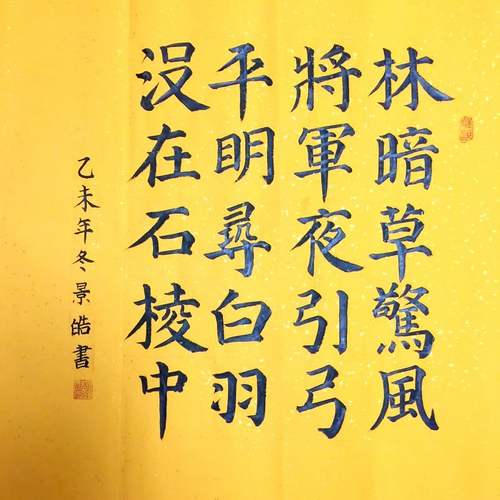 林暗草驚風
將軍夜引弓
平明尋白羽
沒在石棱中
乙未年冬景皓書